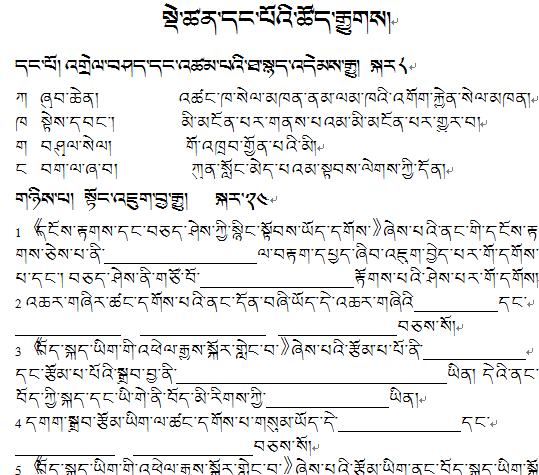 སྡེ་ཚན་དང་པོའི་ཚོད་རྒྱུགས།
དང་པོ། འགྲེལ་བཤད་དང་འཚམ་པའི་ཐ་སྙད་འདེམས་རྒྱུ། སྐར༨
ཀ ཞུབ་ཆེན། འཚང་ཁ་སེལ་མཁན་ནམ་ལམ་ཁའི་འགོག་རྐྱེན་སེལ་མཁན།
ཁ སྟེས་དབང་། མི་མངོན་པར་གནས་པའམ་མི་མངོན་པར་གྱུར་བ།
ག བཤུལ་སེལ། གོ་འཁྲབ་གྱོན་པའི་མི།
ང བག་ལ་ཞ་བ། ཀུན་སློང་མེད་པའམ་སྟབས་ལེགས་ཀྱི་དོན།
གཉིས་པ། སྟོང་འཇུག་བྱ་རྒྱུ། སྐར་༢༤
1 《དངོས་རྟགས་དང་བཅད་ཤེས་ཀྱི་སྙིང་སྟོབས་ཡོད་དགོས་》ཞེས་པའི་ནང་གི་དངོས་རྟ
གས་ཅེས་པ་ནི་________________ལ་བརྟག་དཔྱད་ཞིབ་འཇུག་བྱེད་པར་གོ་དགོས་
པ་དང་། བཅད་ཤེས་ནི་གཙོ་བོ་________________རྟོགས་པའི་ཤེས་པར་གོ་དགོས།
2 འཆར་གཞིར་ཚང་དགོས་པའི་ནང་དོན་བཞི་ཡོད་དེ་འཆར་གཞིའི__________དང་
____________ ____________ ____________བཅས་སོ།
3 《བོད་སྐད་ཡིག་གི་འཕེལ་རྒྱས་སྐོར་གླེང་བ་》ཞེས་པའི་རྩོམ་པ་པོ་ནི____________
དང་རྩོམ་པ་པོའི་སྒྲུབ་བྱ་ནི་______________________________ཡིན། དེའི་ནང་
བོད་ཀྱི་སྐད་དང་ཡི་གེ་ནི་བོད་མི་རིགས་ཀྱི་______________ཡིན།
4 དགག་སྒྲུབ་རྩོམ་ཡིག་ལ་ཚང་དགོས་པ་གསུམ་ཡོད་དེ་______________དང་
______________ ______________བཅས་སོ།
5 《བོད་སྐད་ཡིག་གི་འཕེལ་རྒྱས་སྐོར་གླེང་བ་》ཞེས་པའི་ནང་བོད་སྐད་ཡིག་སྐོ